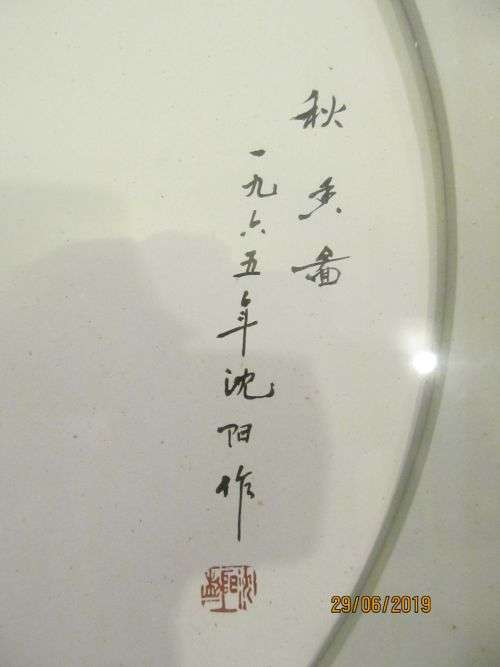 秋香圖
一九六五年沈阳作
29/06/2019